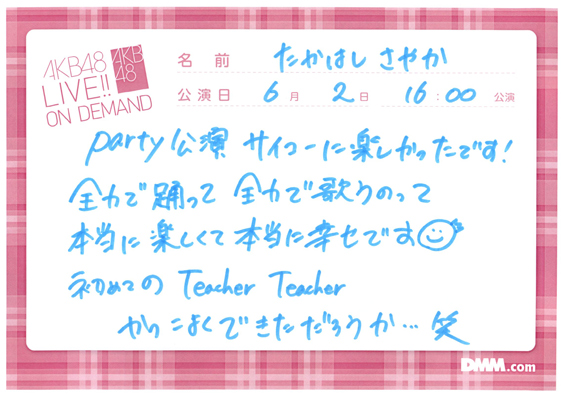 AKB48
LIVE!!
ON DEMAND
AKB
48
名前 たかはし さやか
公演日 6月 2日 16:00 公演
party公演 サイコーに楽しかったです!
全力で踊って 全力で歌うのって
本当に楽しくて本当に幸せです
初めての Teacher Teacher
かっこよくできただろうか… 笑
DMM.com